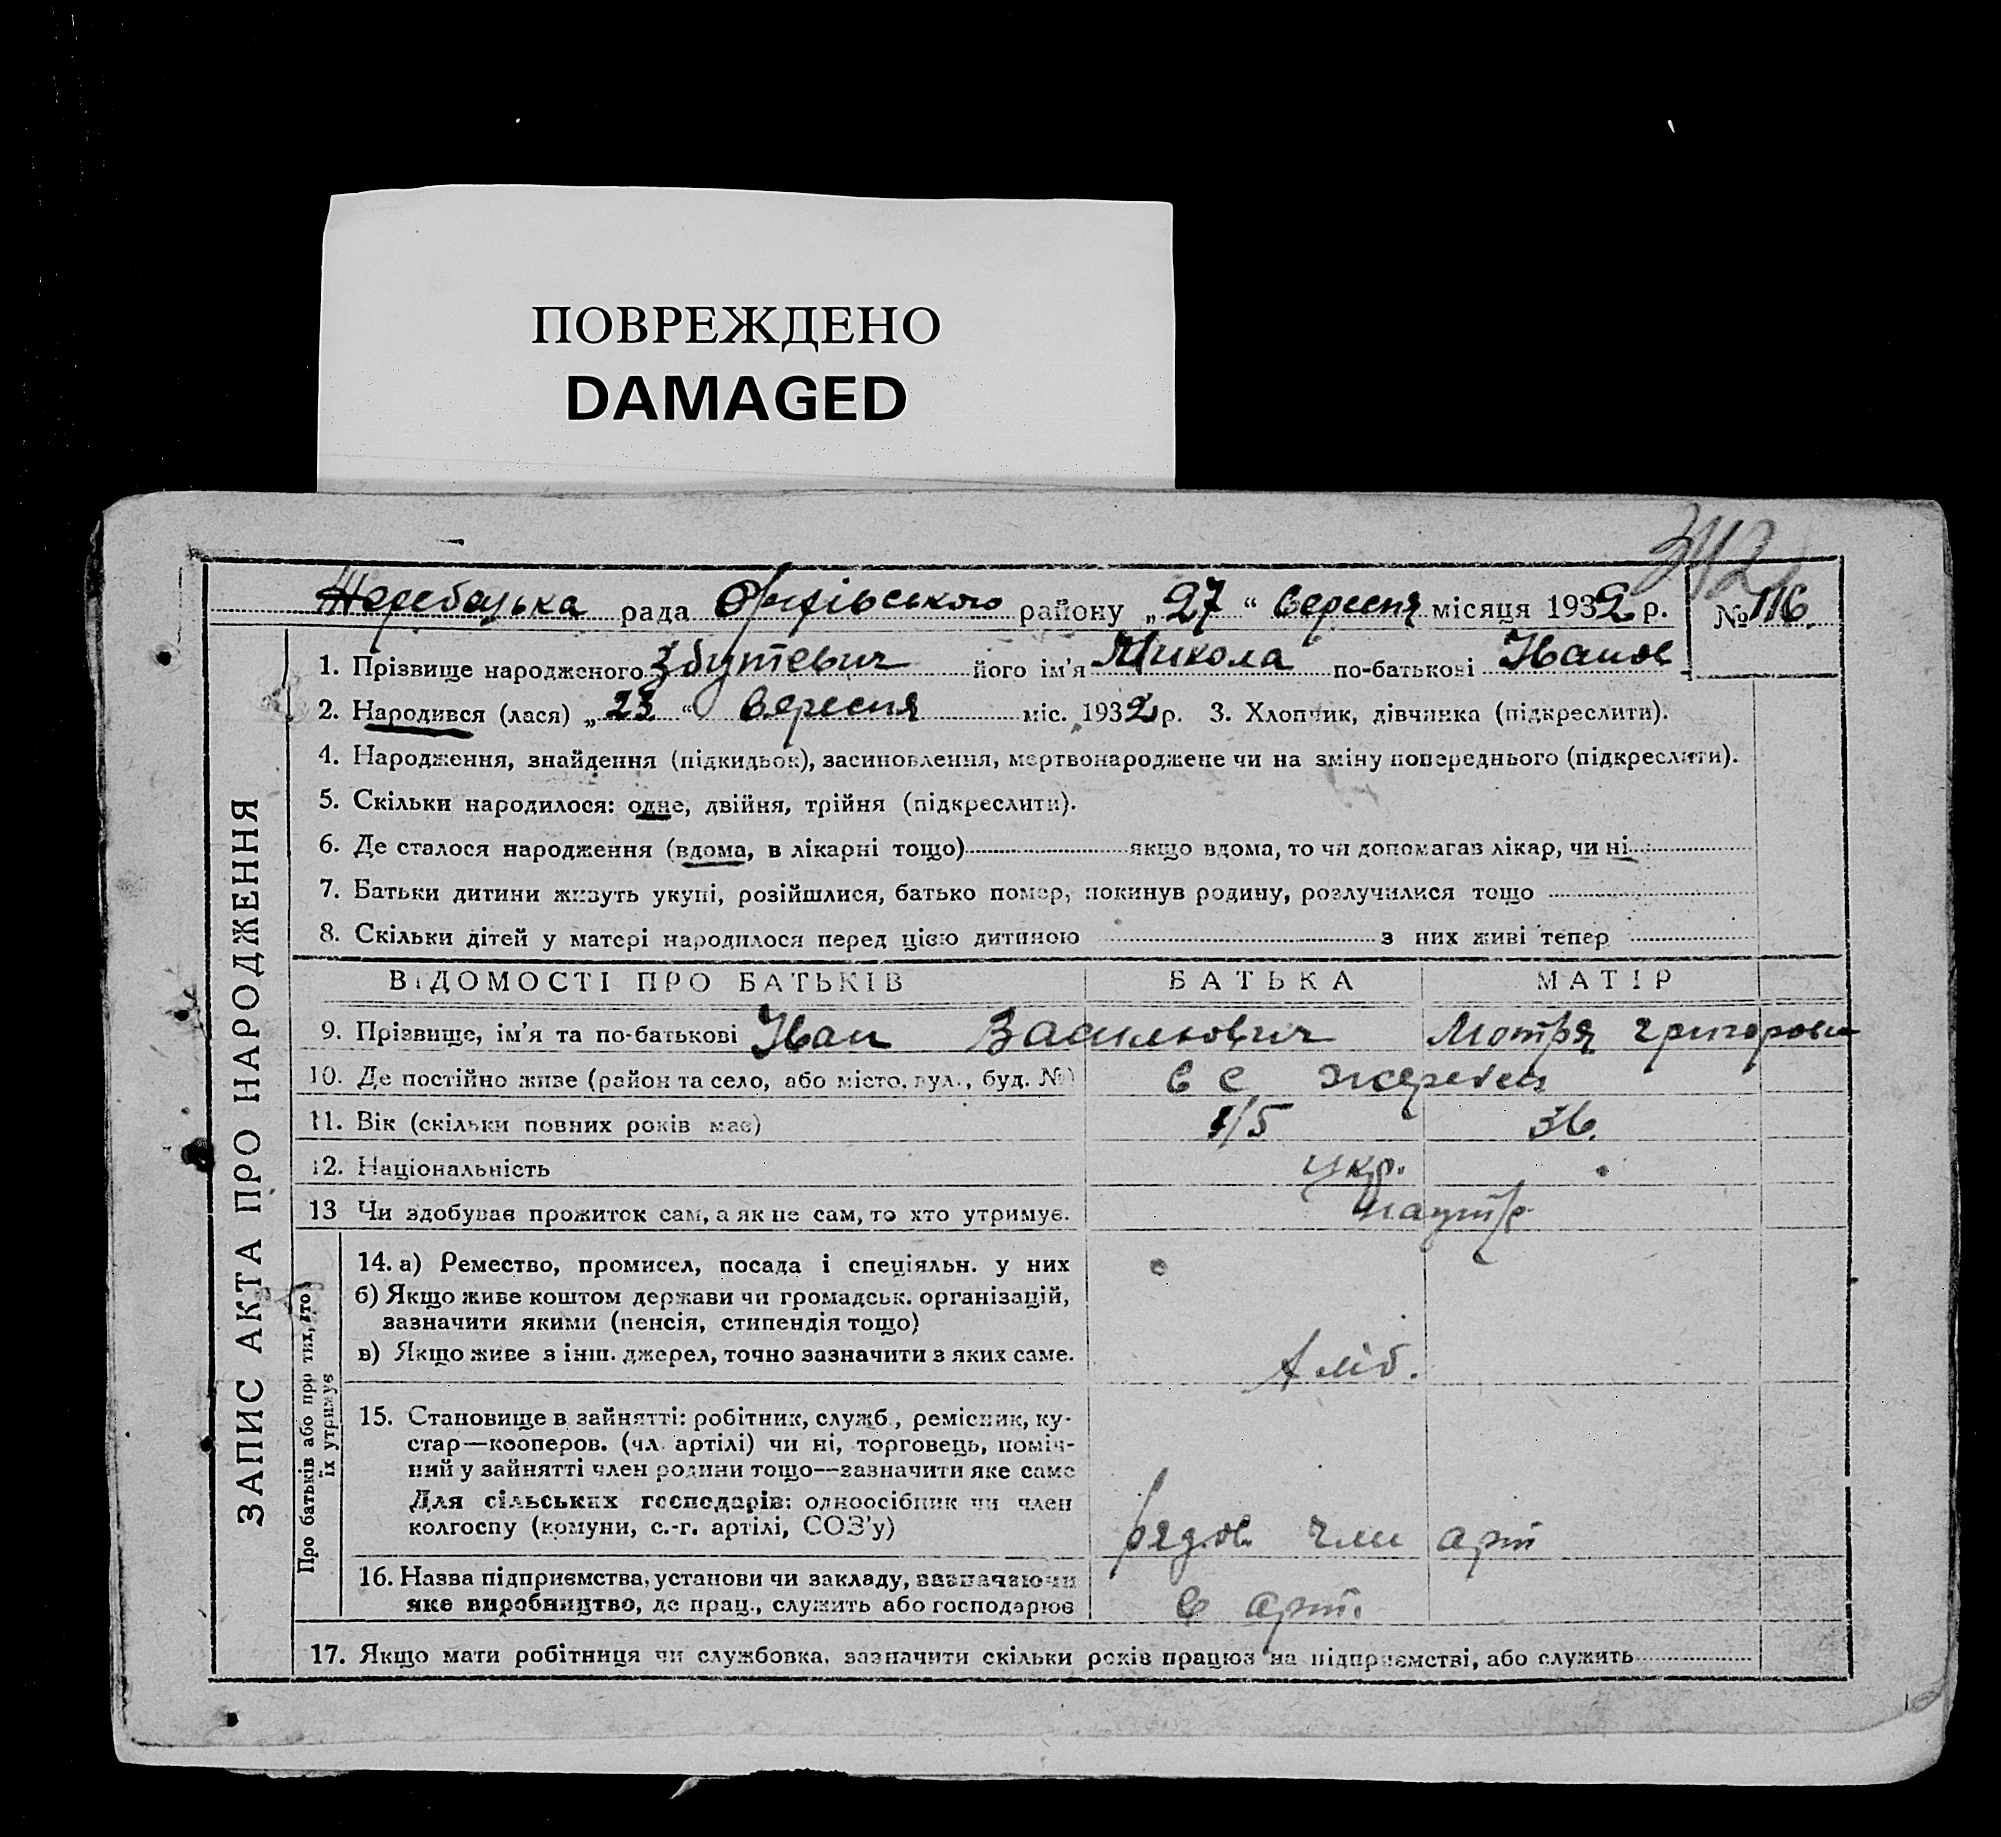 ПОВРЕЖДЕНО
DAMAGED
342
Жеребецька рада Оріхівського району „27“ вересня місяця 1932 р. № 116.
1. Прізвище народженого Збутевич його ім'я Микола по-батькові Іванов
2. Народився (лася) „23“ вересня міс. 1932 р. 3. Хлопчик, дівчинка (підкреслити).
4. Народження, знайдення (підкидьок), засиновлення, мертвонароджене чи на зміну попереднього (підкреслити).
5. Скільки народилося: одне, двійня, трійня (підкреслити).
6. Де сталося народження (вдома, в лікарні тощо) якщо вдома, то чи допомагав лікар, чи ні
7. Батьки дитини живуть укупі, розійшлися, батько помер, покинув родину, розлучилися тощо
8. Скільки дітей у матері народилося перед цією дитиною з них живі тепер
ВІДОМОСТІ ПРО БАТЬКІВ БАТЬКА МАТІР
9. Прізвище, ім'я та по-батькові Іван Васильович Мотря Григоровн
10. Де постійно живе (район та село, або місто, вул., буд. №) в с Жеребец
11. Вік (скільки повних років має) 36.
12. Національність укр.
13 Чи здобуває прожиток сам, а як не сам, то хто утримує.
14. а) Ремество, промисел, посада і спеціяльн. у них
б) Якщо живе коштом держави чи громадськ. організацій,
зазначити якими (пенсія, стипендія тощо)
в) Якщо живе з інш. джерел, точно зазначити з яких саме.
15. Становище в зайнятті: робітник, служб., ремісник, ку-
стар—кооперов. (чл. артілі) чи ні, торговець, поміч-
ний у зайнятті член родини тощо—зазначити яке саме
Для сільських господарів: одноосібник чи член
колгоспу (комуни, с.-г. артілі, СОЗ'у) рядов. член арт
16. Назва підприємства, установи чи закладу, зазначаючи
яке виробництво, де прац., служить або господарює в арт.
17. Якщо мати робітниця чи службовка, зазначити скільки років працює на підприємстві, або служить
ЗАПИС АКТА ПРО НАРОДЖЕННЯ
Про батьків або про тих, хто
їх утримує